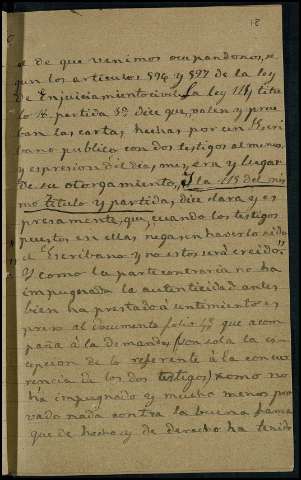 18
el de que venimos ocupandonos, se
gun los artículos 594 y 597 de la ley
de Enjuiciamiento civil. La ley 114, titu
lo 18. partida 3ª dice que, valen y prue
ban las cartas, hechas por un Escri
bano público con dos testigos al menos
y espresion del dia, mes, era y lugar
de su otorgamiento. Y la 115 del mis
mo título y partida, dice clara y es
presamente, que, cuando los testigos
puestos en ellas negasen haberlo sido
el Escribano y no estos será creido."
Y como la parte contraria no ha
impugnado la autenticidad antes
bien ha prestado asentimiento es
preso al documento folio que acom
paña á la demanda (con sola la es
cepcion de lo referente á la concur
rencia de los dos testigos) y como no
há impugnado y mucho menos pro
vado nada contra la buena fama
que de hecho y de derecho ha tenido